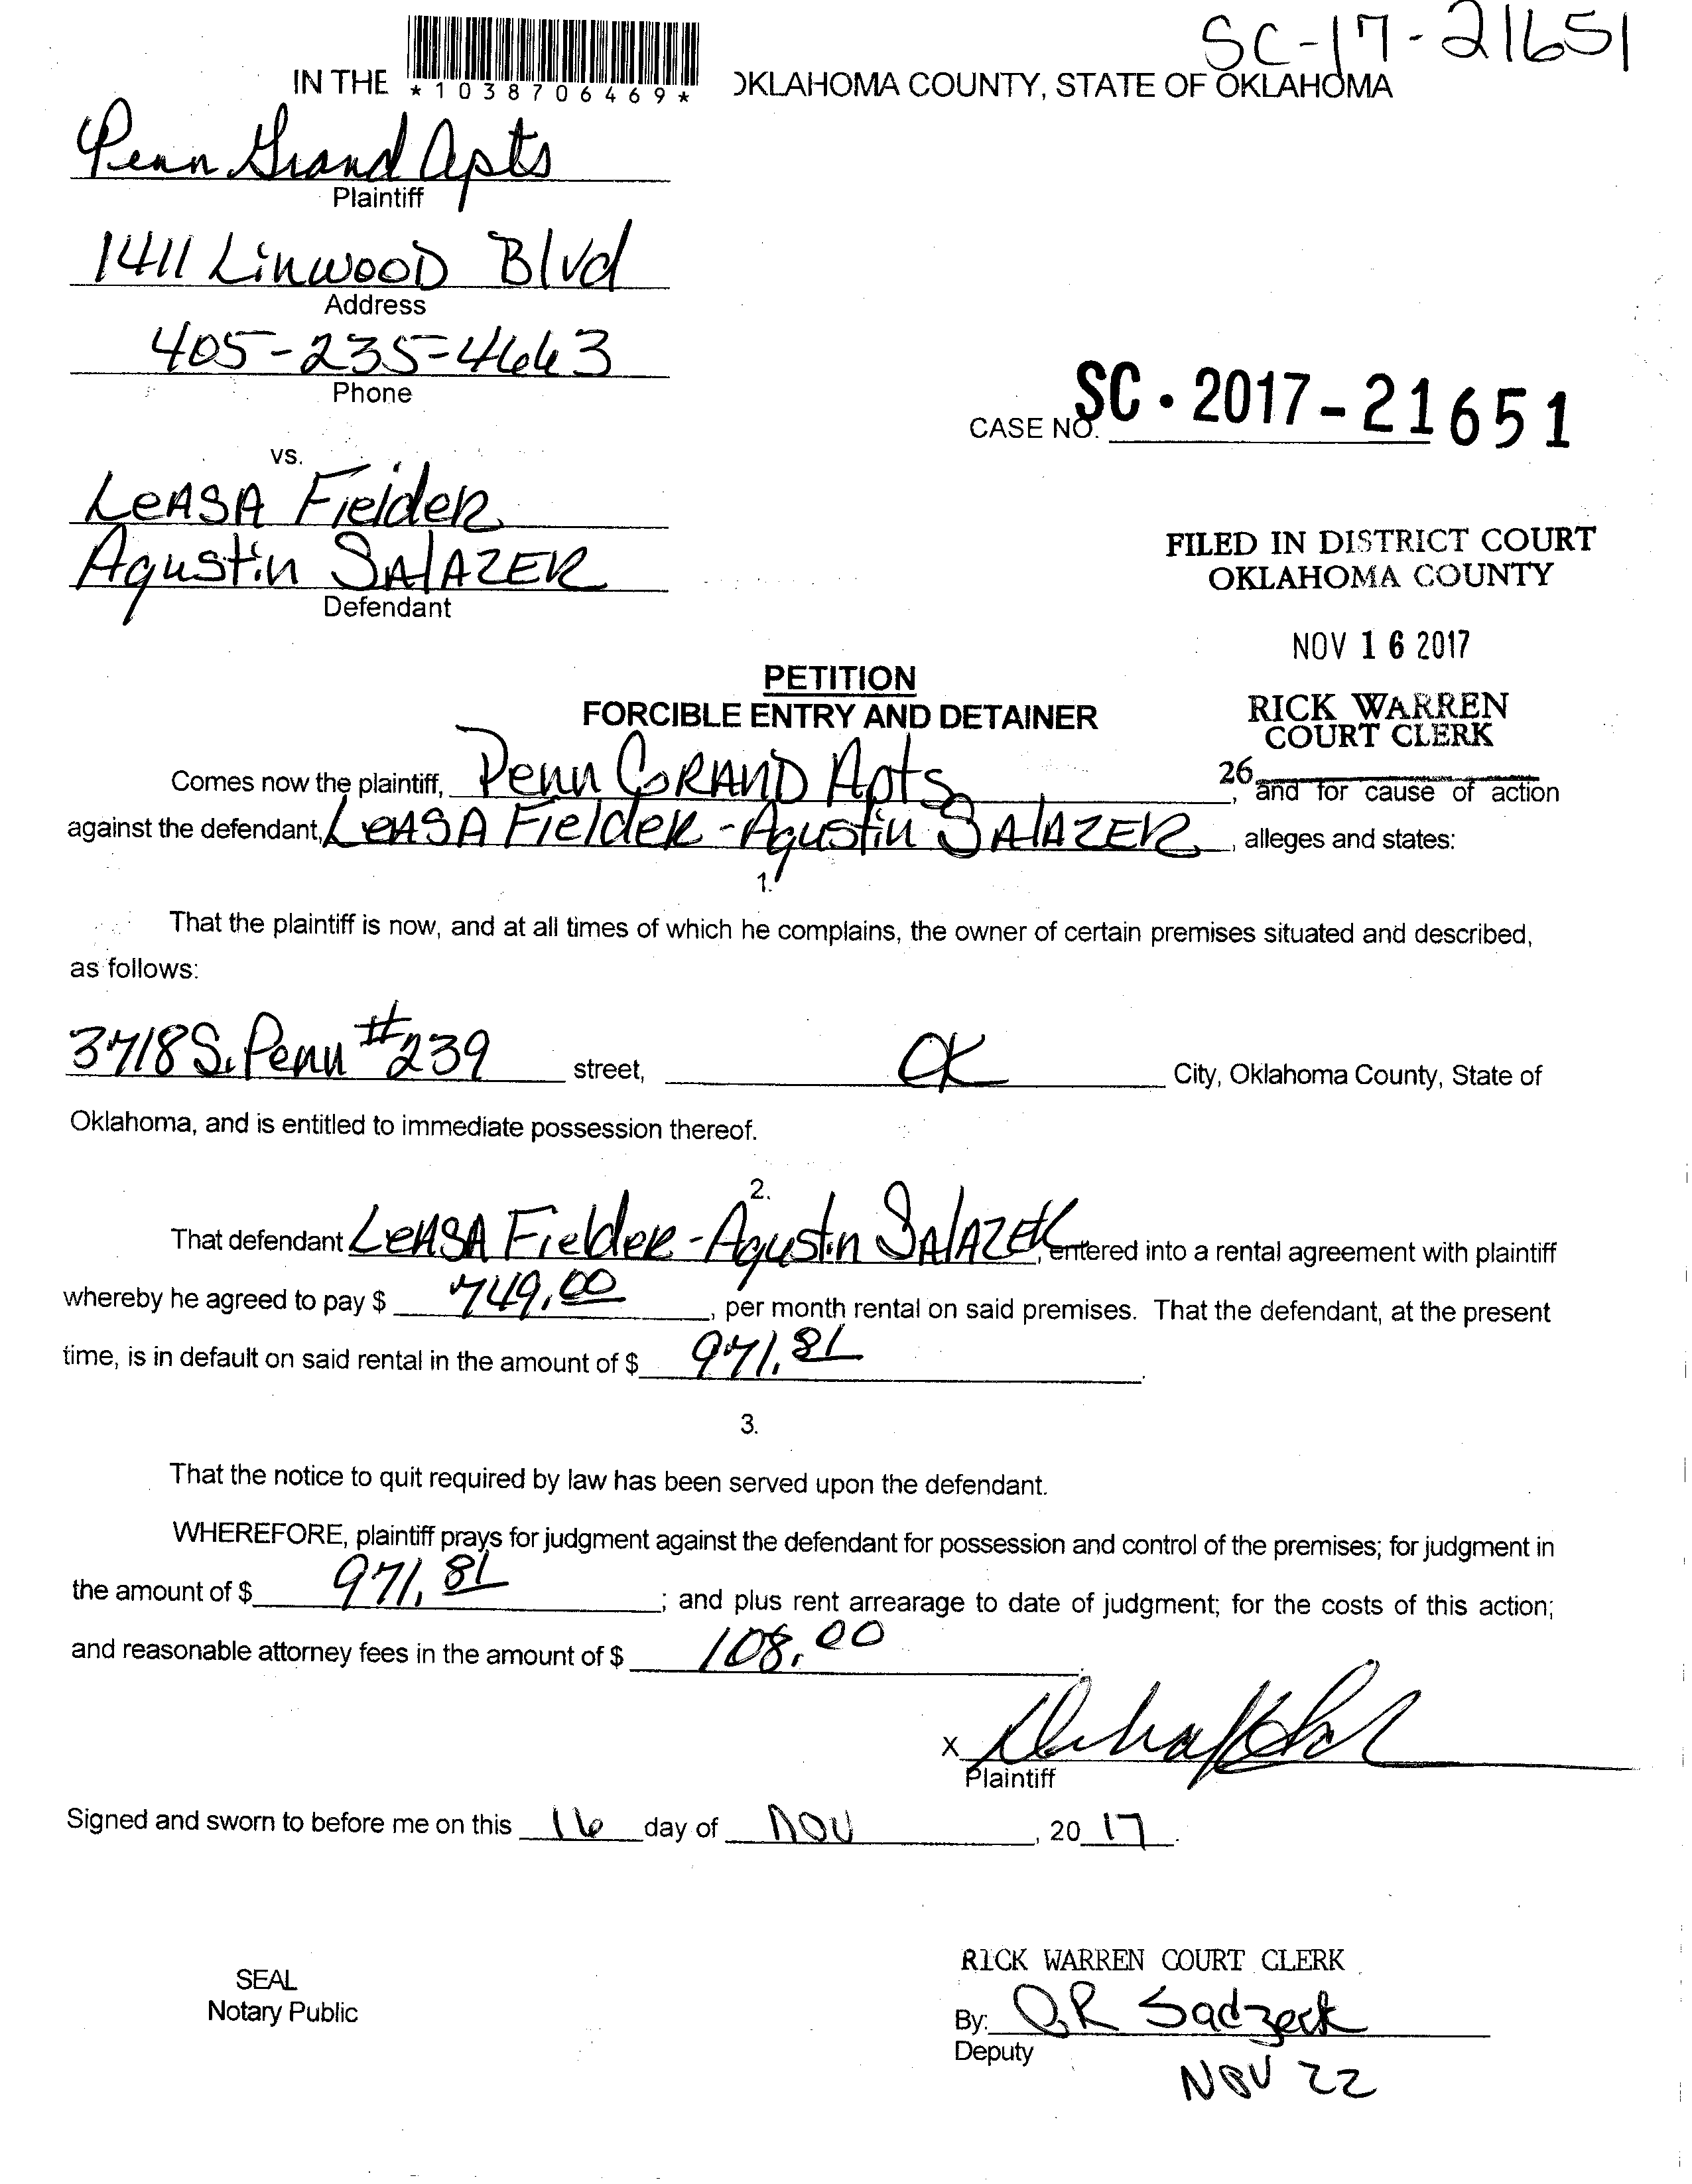 SC-17-21651
IN THE *1038706469* OKLAHOMA COUNTY, STATE OF OKLAHOMA
Penn Grand Apts
Plaintiff
1411 Linwood Blvd
Address
405-235-4663
Phone
vs.
CASE NO. SC-2017-21651
LeASA Fielder
Agustin SAlAZER
Defendant
FILED IN DISTRICT COURT
OKLAHOMA COUNTY
NOV 16 2017
RICK WARREN
COURT CLERK
26
PETITION
FORCIBLE ENTRY AND DETAINER
Comes now the plaintiff, Penn GRAND Apts, and for cause of action
against the defendant, LeASA Fielder - Agustin SAlAZER, alleges and states:
1.
That the plaintiff is now, and at all times of which he complains, the owner of certain premises situated and described,
as follows:
3718 S. Penn #239 street, OK City, Oklahoma County, State of
Oklahoma, and is entitled to immediate possession thereof.
2.
That defendant LeASA Fielder - Agustin SAlAZER, entered into a rental agreement with plaintiff
whereby he agreed to pay $ 749.00, per month rental on said premises. That the defendant, at the present
time, is in default on said rental in the amount of $ 971.81.
3.
That the notice to quit required by law has been served upon the defendant.
WHEREFORE, plaintiff prays for judgment against the defendant for possession and control of the premises; for judgment in
the amount of $ 971.81; and plus rent arrearage to date of judgment; for the costs of this action;
and reasonable attorney fees in the amount of $ 108.00.
X
Plaintiff
Signed and sworn to before me on this 16 day of NOV, 2017.
SEAL
Notary Public
RICK WARREN COURT CLERK
By:
Deputy
NOV 22